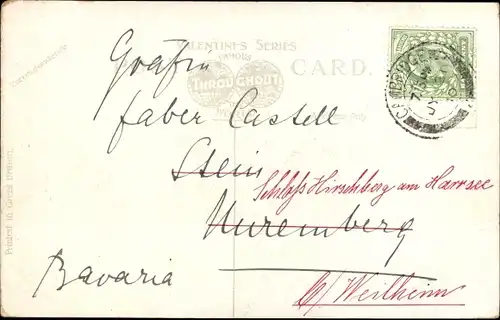 VALENTINE'S SERIES
FAMOUS
THROUGHOUT
CARD.
Gräfin
Faber Castell
Stein
Schloß Hirschberg am Haarsee
Nuremberg
Bavaria
b/ Weilheim
Printed in Great Britain.
CAMBRIDGE